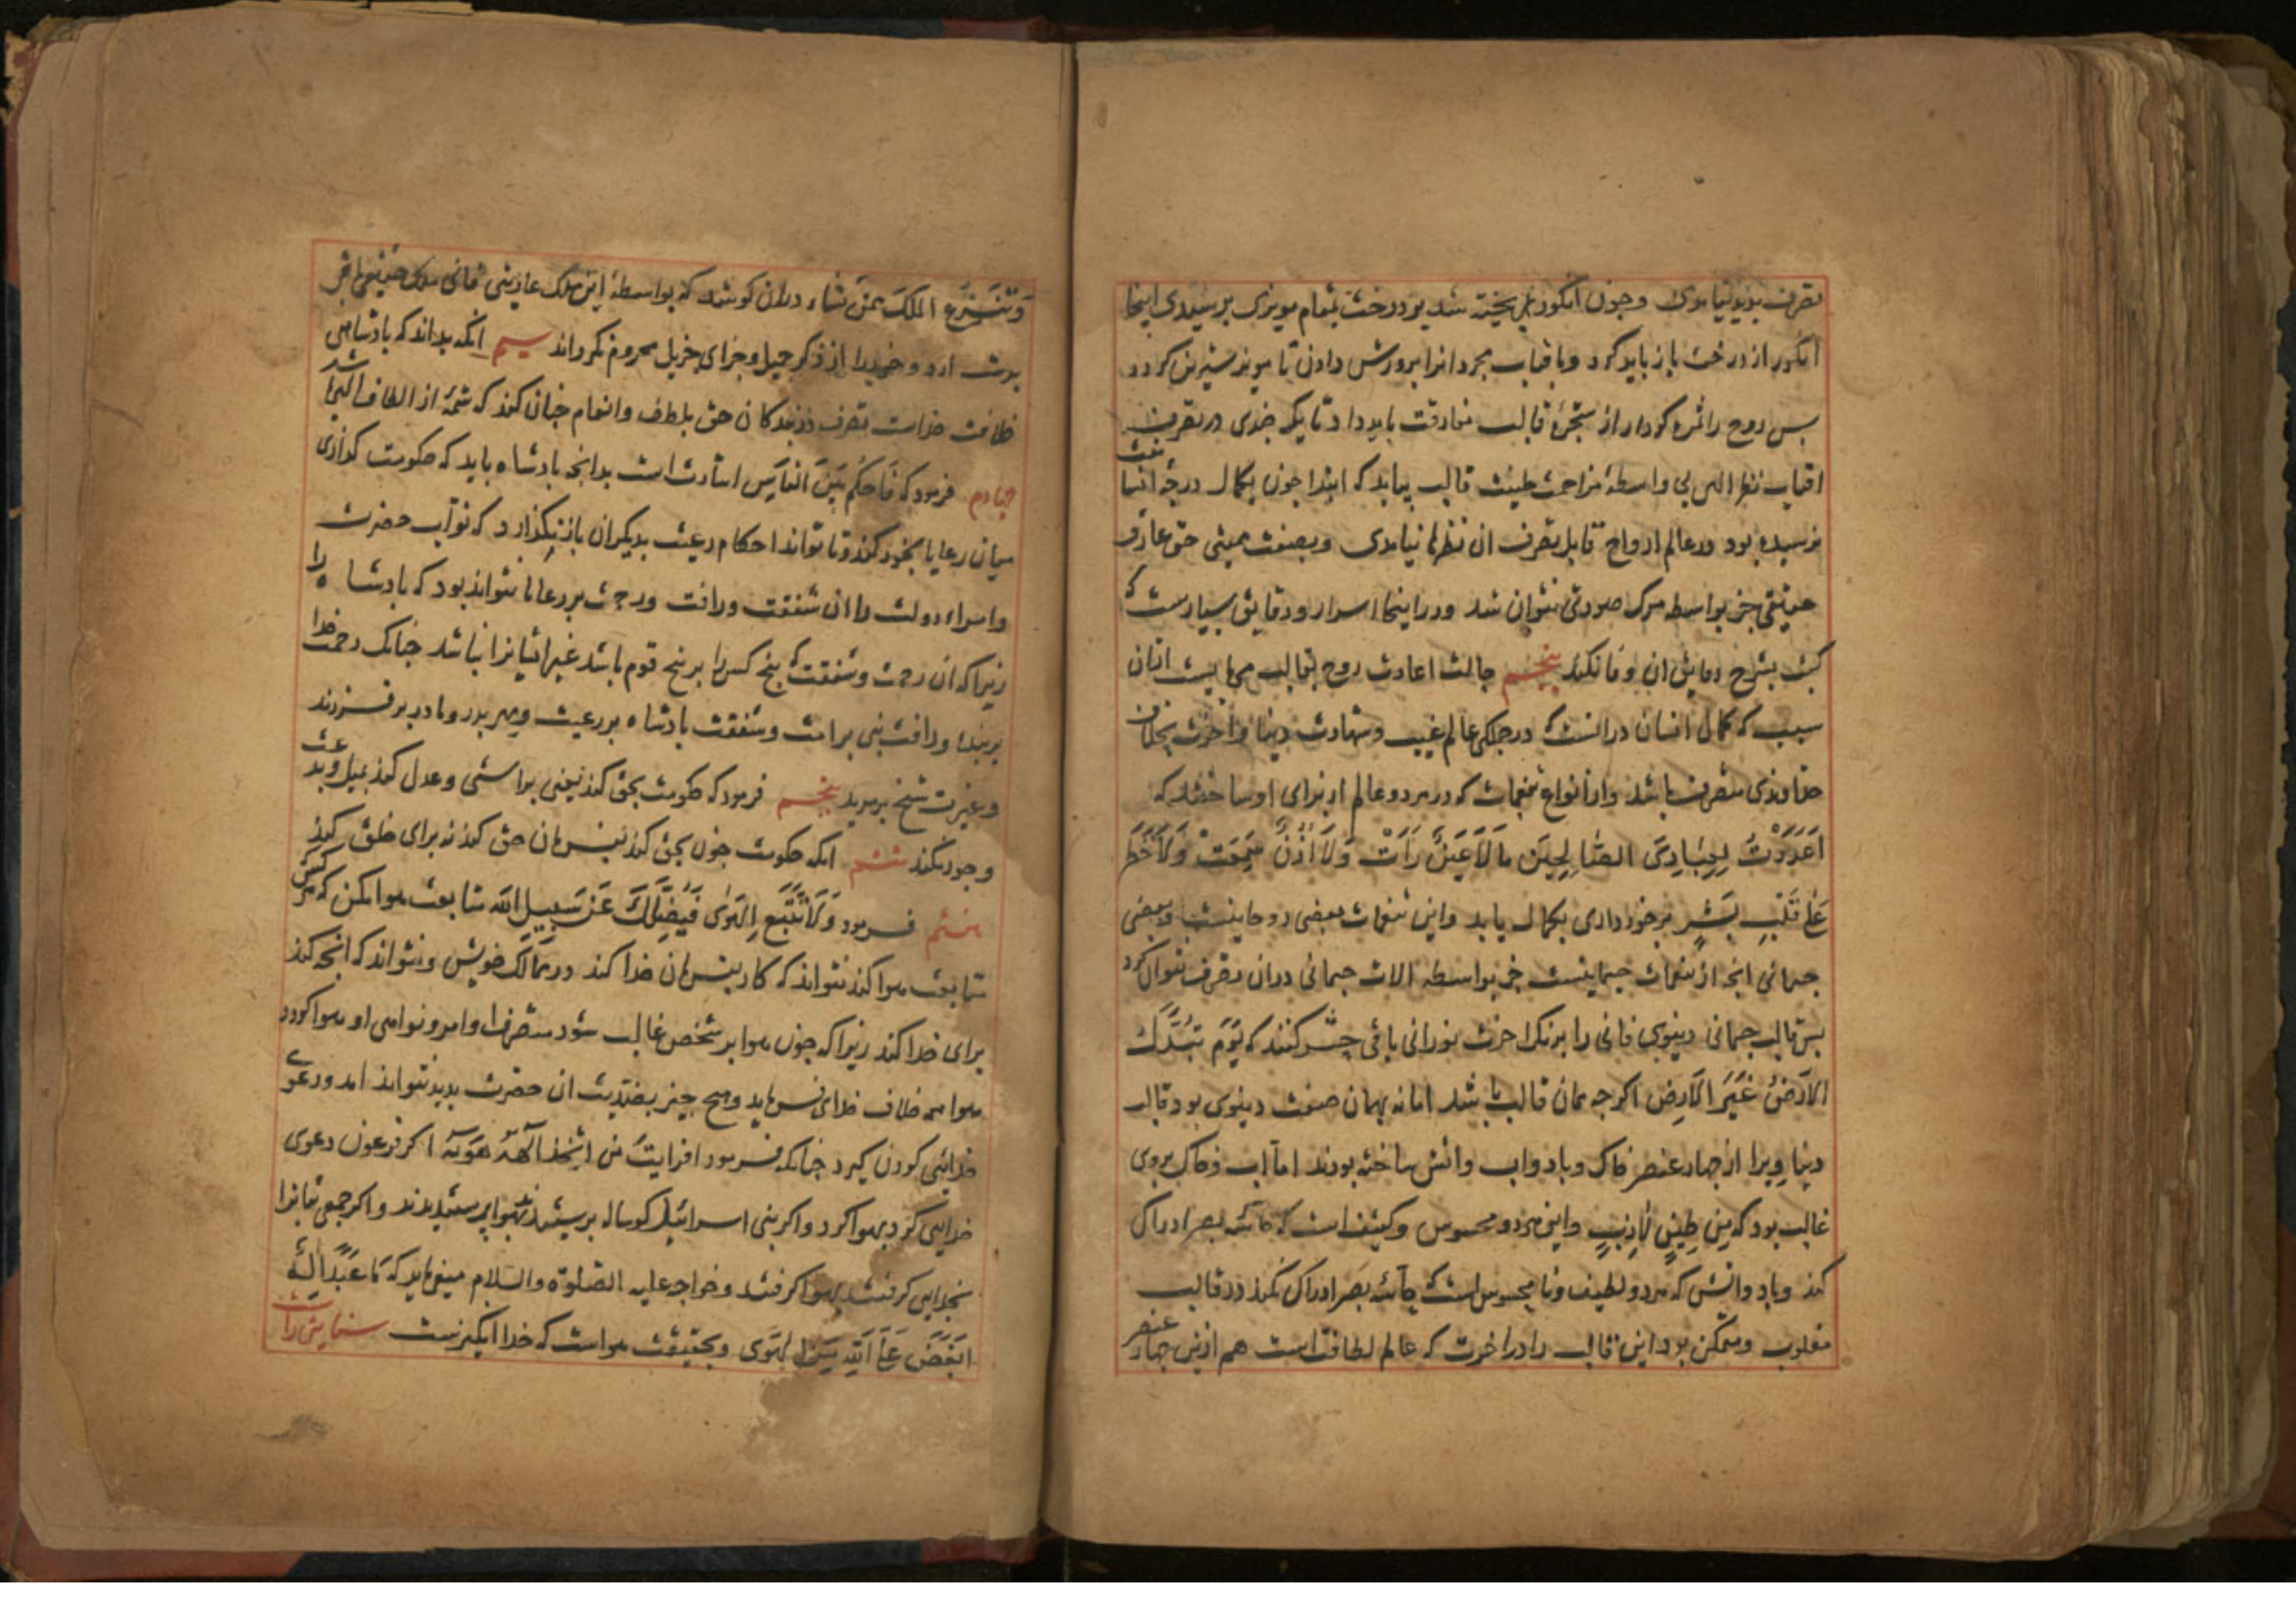 تصرف پدید نیامدی و جون انکور بر پخته شد بود درخت بمقام مویزی برسیدی اینجا
انکور از درخت باز باید کرد و بافتاب مجرد انرا برورش دادن تا مویز شیرین کردد
بس روح را ثمره کردار از شجرهٔ قالب مفارقت باید داد تا یک جندی در تصرف
افتاب نظر الهی بی واسطهٔ مزاحمت طینت قالب بیابد که ابتدا جون بکمال درجهٔ انسانیت
نرسیده بود در عالم ارواح قابل تصرف ان نظرها نیامدی و بصفت ممیتی حق عارف
حقیقی جز بواسطه مرک صورتی نتوان شد و در اینجا اسرار و دقایق بسیارست که
کتب بشرح دقایق ان وفا نکند پنجم حالت اعادت روح بقالب می‌بایست از ان
سبب که کمال انسان در انست که در جملکی عالم غیب و شهادت دنیا و اخرت بخلافت
خداوندی متصرف باشد و از انواع تنعمات که در هر دو عالم از برای او ساخته‌اند که
اَعْدَدْتُ لِعِبَادِیَ الصَّالِحِینَ مَا لَا عَیْنٌ رَأَتْ وَلَا أُذُنٌ سَمِعَتْ وَلَا خَطَرَ
عَلَى قَلْبِ بَشَرٍ برخورداری بکمال یابد و این تنعمات بعضی روحانیست و بعضی
جسمانی انجه از تنعمات جسمانیست جز بواسطه الات جسمانی دران تصرف نتوان کرد
بس قالب جسمانی دنیوی فانی را برنک اخرت نورانی باقی حشر کنند که یَوْمَ تُبَدَّلُ
الْأَرْضُ غَیْرَ الْأَرْضِ اکرجه همان قالب باشد اما نه بهمان صفت دنیوی بود قالب
دنیا ویرا از جهار عنصر خاک و باد و اب و اتش ساخته بودند اما اب و خاک بروی
غالب بود که مِن طِینٍ لَازِبٍ و این هر دو محسوس و کثیف است که حاسّه بصر ادراک
کند و باد و اتش که هر دو لطیف و نا محسوس است که حاسّهٔ بصر ادراک نکند در قالب
مغلوب و متمکن بود این قالب را در اخرت که عالم لطافت است هم ازین جهار عنصر
وَتَنْزِعُ الْمُلْكَ مِمَّنْ تَشَاء دران کوشد که بواسطهٔ این ملک عاریتی فانی ملک حقیقی باقی
بدست ارد و خود را از ذکر جمیل و جزای جزیل محروم نکرداند سیم انکه بداند که بادشاهی
خلافت خداست تصرف در بندکان حق بلطف و انعام جنان کند که شمهٔ از الطاف الهی باشد
جهارم فرمود که فَاحْكُم بَیْنَ النَّاسِ اشارت است بدانجه بادشاه باید که حکومت کذاری
میان رعایا بخود کند و تا تواند احکام رعیت بدیکران باز نکذارد که نواب حضرت
و امراء دولت را ان شفقت و رافت و رحمت بر رعایا نتواند بود که بادشاه را
زیرا که ان رحمت و شفقت که بنج کس را بر بنج قوم باشد غیر ایشانرا نباشد جنانک رحمت خدا
بر بنده و رافت نبی بر امت و شفقت بادشاه بر رعیت و مهر بدر و مادر بر فرزند
و غیرت شیخ بر مرید پنجم فرمود که حکومت بحق کند یعنی براستی و عدل کند بمیل و بدعت
و جور نکند ششم انکه حکومت جون بحق کند بفرمان حق کند نه برای خلق کند
هفتم فرمود وَلَا تَتَّبِعِ الْهَوَى فَیُضِلَّكَ عَنْ سَبِیلِ اللَّه متابعت هوا مکن که هرکس
متابعت هوا کند نتواند که کار بفرمان خدا کند در ممالک خویش و نتواند که انجه کند
برای خدا کند زیرا که جون هوا بر شخص غالب شود متصرف اوامر و نواهی او هوا کردد
هوا همه خلاف خدای فرماید و هیج جیز بضدیت ان حضرت بدید نتواند امد و دعوی
خدائی کردن کیرد جنانکه فرمود افرایت من اتخذ الهه هویه اکر فرعون دعوی
خدایی کرد بهوا کرد و اکر بنی اسرائیل کوساله برستیدند بهوا برستیدند و اکر جمعی بتانرا
بخدایی کرفتند بهوا کرفتند و خواجه علیه الصلوة والسلام میفرماید که مَا عُبِدَ إِلَهٌ
أَبْغَضَ عَلَى اللَّهِ مِنَ الْهَوَى و بحقیقت هواست که خدا انکیزست